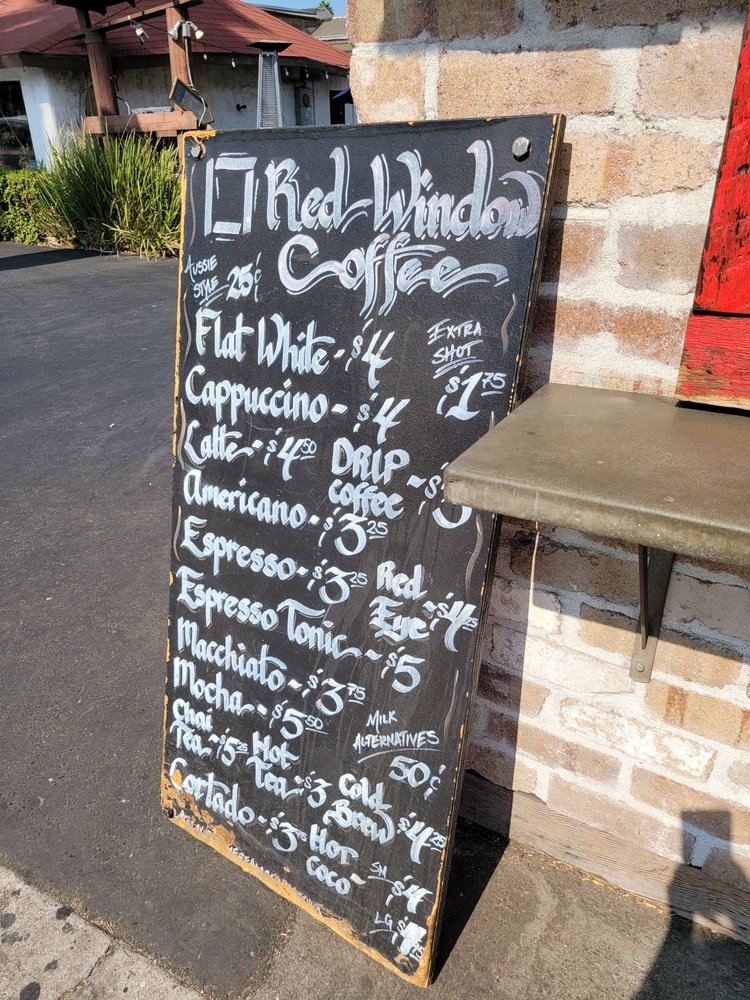 Red Window
Coffee
Aussie
Style 25¢
Flat White - $4
Extra
Shot
$1 75
Cappuccino - $4
Latte - $4 50
Drip
Coffee - $3
Americano - $3 25
Espresso - $3 25
Red
Eye - $4 25
Espresso Tonic - $5
Macchiato - $3 75
Mocha - $5 50
Milk
Alternatives
50¢
Chai
Tea - $5 25
Hot
Tea - $3
Cold
Brew $4 25
Cortado - $3 75
Hot
Coco - SM $4
LG $4 75